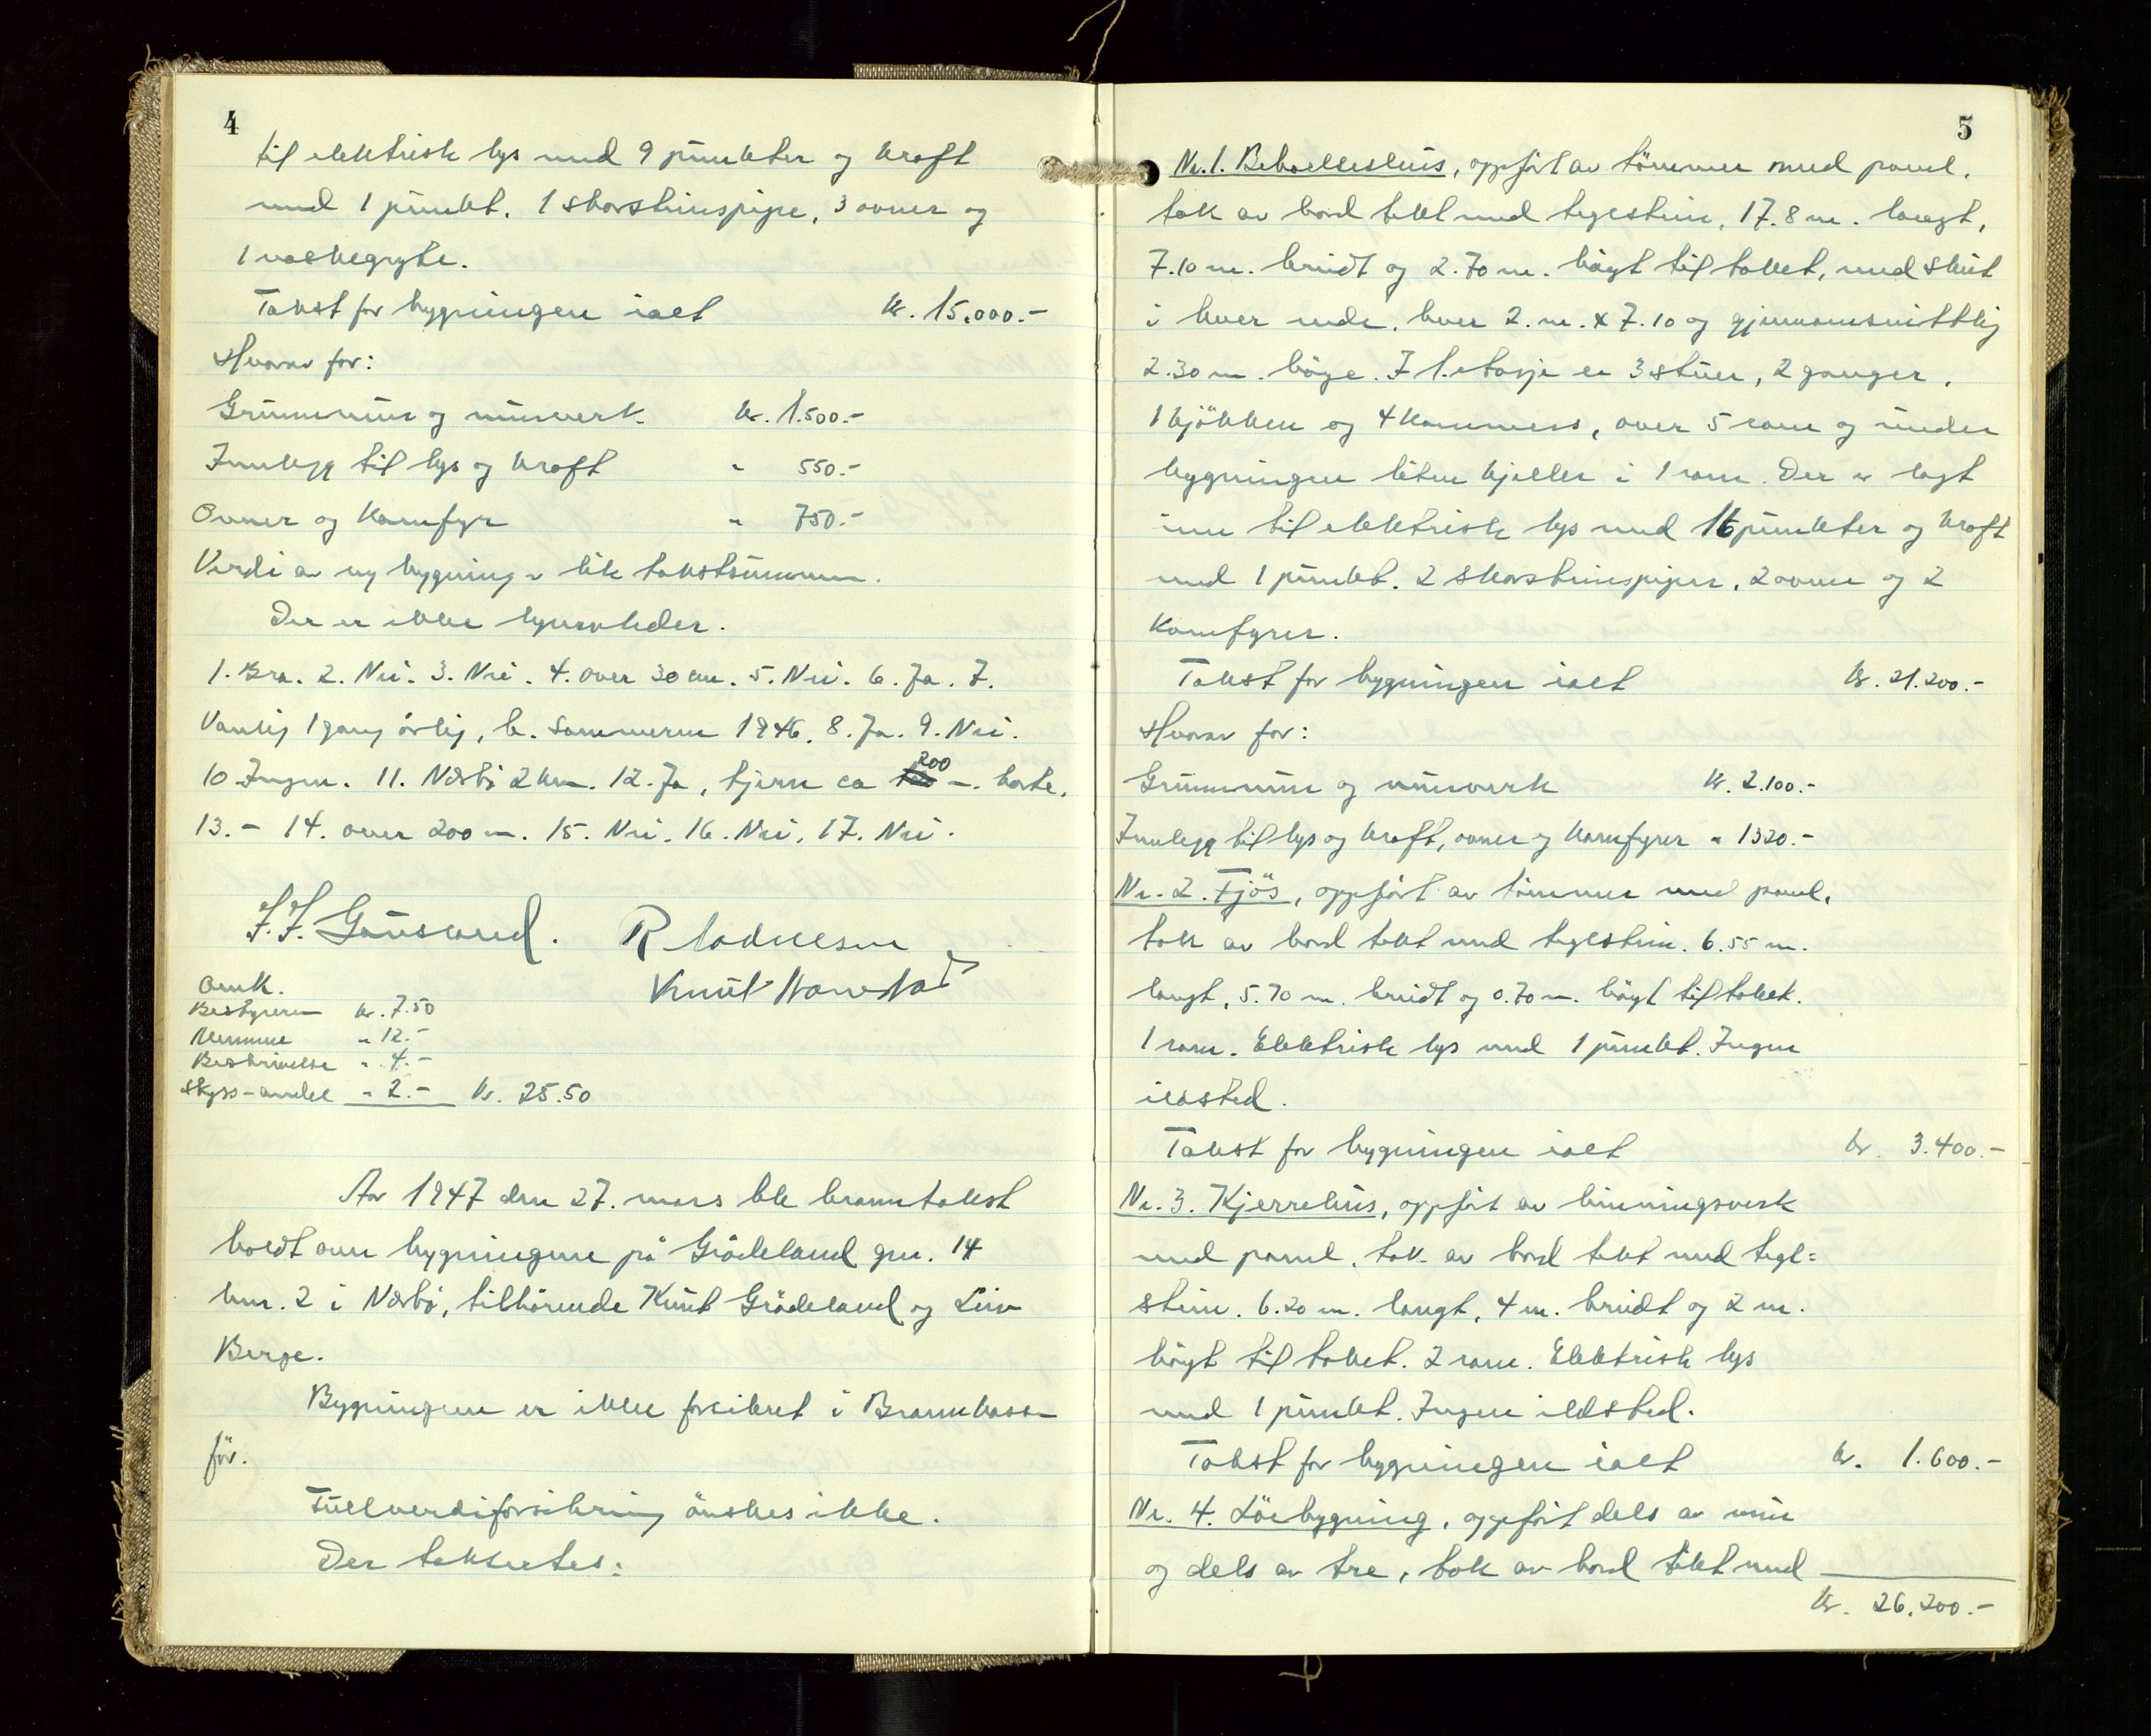 4
til elektrisk lys med 9 punkter og kraft
med 1 punkt. 1 skorsteinspipe, 3 ovner og
1 vaskegryte.
Takst for bygningen ialt kr. 15.000.-
Hvorav for:
Grunnmur og murverk kr. 1.500.-
Innlegg til lys og kraft " 550.-
Ovner og Komfyr " 750.-
Verdi av ny bygning er lik takstsummen.
Der er ikke lynavleder.
1. Bra. 2. Nei. 3. Nei. 4. over 30 cm. 5. Nei. 6. Ja. 7.
Vanlig 1 gang årlig, b. sommeren 1946. 8. Ja. 9. Nei.
10 Ingen. 11. Nærbö 2 km. 12. Ja, tjern ca 200 m. borte.
13. - 14. over 200 m. 15. Nei. 16. Nei. 17. Nei.
Knut
Omk.
Bestyreren kr. 7.50
Mennene " 12.-
Beskrivelse " 4.-
Skyss-andel " 2.- kr. 25.50
År 1947 den 27. mars ble branntakst
holdt over bygningene på Grödeland gnr. 14
bnr. 2 i Nærbö, tilhörende Knut Grödeland og Liv
Berge.
Bygningene er ikke forsikret i Brannkassen
för.
Fullverdiforsikring önskes ikke.
Der taksertes:
5
Nr. 1. Beboelseshus, oppfört av tömmer med panel,
tak av bord tekt med teglstein, 17.8 m. langt,
7.10 m. breidt og 2.70 m. högt til taket, med skut
i hver ende, hver 2. m. x 7.10 og gjennomsnittlig
2.30 m. höge. I 1. etasje er 3 stuer, 2 ganger,
1 kjökken og 4 kammers, over 5 rom og under
bygningen liten kjeller i 1 rom. Der er lagt
inn til elektrisk lys med 16 punkter og kraft
med 1 punkt. 2 skorsteinspiper, 2 ovner og 2
Komfyrer.
Takst for bygningen ialt kr. 21.200.-
Hvorav for:
Grunnmur og murverk kr. 2.100.-
Innlegg til lys og kraft, ovner og komfyrer " 1320.-
Nr. 2. Fjös, oppfört av tömmer med panel,
tak av bord tekt med teglstein. 6.55 m.
langt, 5.70 m. breidt og 0.70 m. högt til taket.
1 rom. Elektrisk lys med 1 punkt. Ingen
ildsted.
Takst for bygningen ialt kr. 3.400.-
Nr. 3. Kjerrehus, oppfört av binningsverk
med panel, tak av bord tekt med tegl=
stein. 6.20 m. langt, 4 m. breidt og 2 m.
högt til taket. 2 rom. Elektrisk lys
med 1 punkt. Ingen ildsted.
Takst for bygningen ialt kr. 1.600.-
Nr. 4. Löebygning, oppfört dels av mur
og dels av tre, tak av bord tekt med
kr. 26.200.-